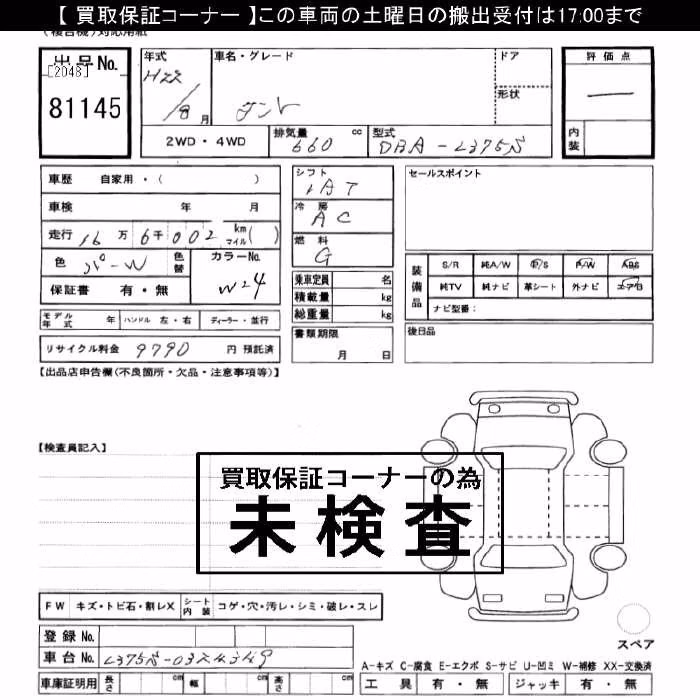 【 買取保証コーナー 】この車両の土曜日の搬出受付は17:00まで
出品No.
[2048]
81145
年式
H22
/8月
車名・グレード
タント
ドア
形状
評価点
内装
2WD・4WD
排気量
660 cc
型式
DBA-L375S
車歴 自家用・( )
車検 年 月
走行 16万 6千 002 km マイル( )
色 パ-W 色替
カラーNo.
W24
保証書 有・無
シフト
IAT
冷房
AC
燃料
G
乗車定員 名
積載量 kg
総重量 kg
セールスポイント
装備品
S/R 純A/W P/S P/W ABS
純TV 純ナビ 革シート 外ナビ エアB
ナビ型番:
モデル年式 年 ハンドル 左・右 ディーラー・並行
書類期限
月 日
後日品
リサイクル料金 9790 円 預託済
【出品店申告欄(不良箇所・欠品・注意事項等)】
【検査員記入】
買取保証コーナーの為
未検査
FW キズ・トビ石・割レX シート内装 コゲ・穴・汚レ・シミ・破レ・スレ
登録 No.
車台 No.
スペア
A-キズ C-腐食 E-エクボ S-サビ U-凹ミ W-補修 XX-交換済
車庫証明用 長さ cm 幅 cm 高さ cm
工具 有・無 ジャッキ 有・無